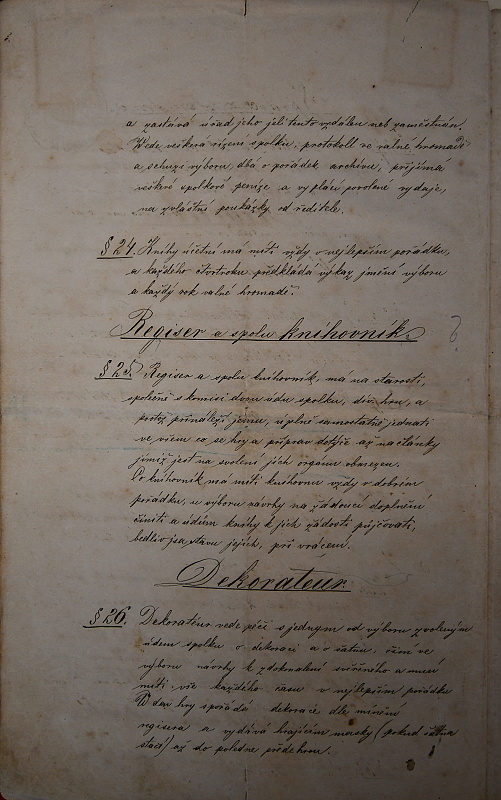 a zastává úřad jeho jeli tento vzdálen neb zaměstnán.
Vede veškerá řízení spolku, protokoll ve valné hromadě
a schuze výboru, dbá o pořádek archivu, přijímá
veškeré spolkové peníze a vyplácí povolené výdaje,
na zvláštní poukázky od ředitele.
§ 24. Knihy účetní má míti vždy v nejlepším pořádku,
a každého čtvrtroku předkládá výkaz jmění výboru
a každý rok valné hromadě.
Regiser a spolu knihovník.
§ 25. Regiser a spolu knihovník, má na starosti,
společně s komisí danou údu spolku, div. hru, a
protož přináleží jemu, úplně samostatně jednati
ve všem co se hry a příprav dotýče až na články
jimiž jest na svolení jich organu obmezen.
Co knihovník má míti knihovnu vždy v dobrém
pořádku, u výboru návrhy na žádoucí doplnění
činiti a údům knihy k jich žádosti půjčovati,
bedliv jsa stavu jejich, při vrácení.
Dekorateur
§ 26. Dekoratéur vede péči s jedným od výboru zvoleným
údem spolku o dekoraci a o šatnu, činí ve
výboru návrhy k zdokonalení svěřeného a musí
míti vše každého času v nejlepším pořádku
V den hry spořádá dekorace dle mínění
regisera a vydává hrajícím masky (pokud šatna
stačí) až do poledne přede hrou.